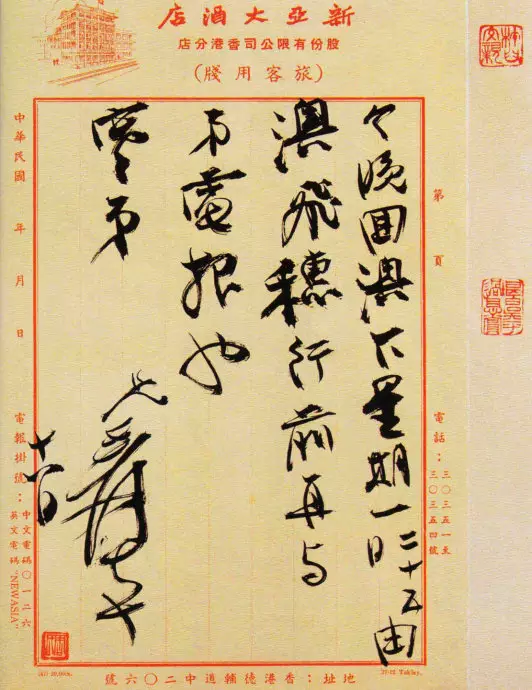 新亞大酒店
股份有限公司香港分店
(旅客用牋)
第 頁
電話：三〇三五一至三〇三五四號
今晚回澳下星期一二十五日由
澳飛穗行前再与
弟電報也
弟
兄爰
十八日
中華民國 年 月 日
電報掛號：中文電碼〇一二六
英文電碼"NEWASIA"
地址：香港德輔道中二〇六號